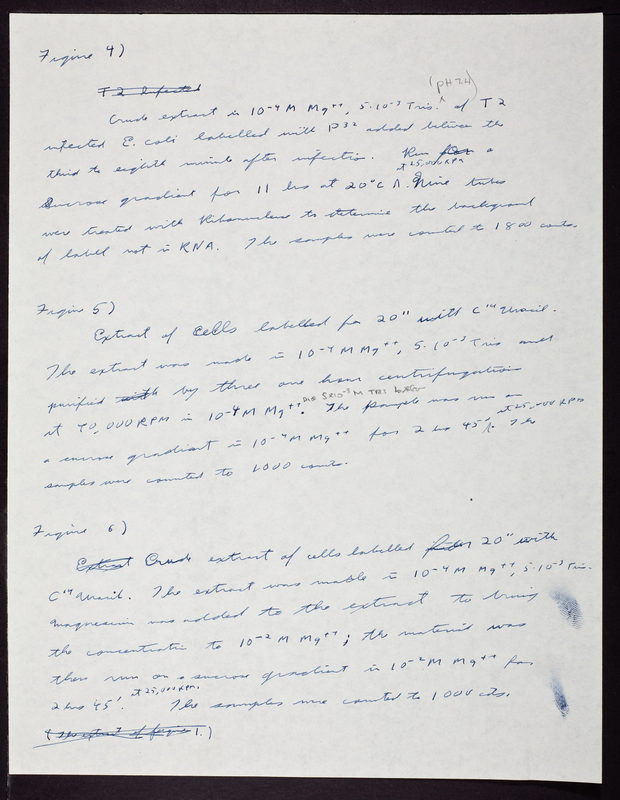 Figure 4)
T2 Infected
(pH 7.4)
Crude extract in 10⁻⁴ M Mg⁺⁺, 5·10⁻³ Tris. ^ of T2
infected E. coli labelled with P³² added between the
third to eighth minute after infection. Run for a
at 25,000 RPM
Sucrose gradient for 11 hrs at 20°C ^. Nine tubes
were treated with Ribonuclease to determine the background
of label not in RNA. The samples were counted to 1800 counts
Figure 5)
Extract of cells labelled for 20" with C¹⁴ Uracil.
The extract was made in 10⁻⁴ M Mg⁺⁺, 5·10⁻³ Tris and
purified with by three one hour centrifugations
and 5x10⁻³ M TRIS buffer
at 40,000 RPM in 10⁻⁴ M Mg⁺⁺. The sample was run on
at 25,000 RPM
a sucrose gradient in 10⁻⁴ M Mg⁺⁺ for 2 hrs 45' ^. The
samples were counted to 1000 counts.
Figure 6)
Extract Crude extract of cells labelled 20" with
C¹⁴ Uracil. The extract was made in 10⁻⁴ M Mg⁺⁺, 5·10⁻³ Tris.
Magnesium was added to the extract to bring
the concentration to 10⁻² M Mg⁺⁺; the material was
then run on a sucrose gradient in 10⁻² M Mg⁺⁺ for
at 25,000 RPM.
2 hrs 45'. The samples were counted to 1000 cts.
(The extract of figure 1.)